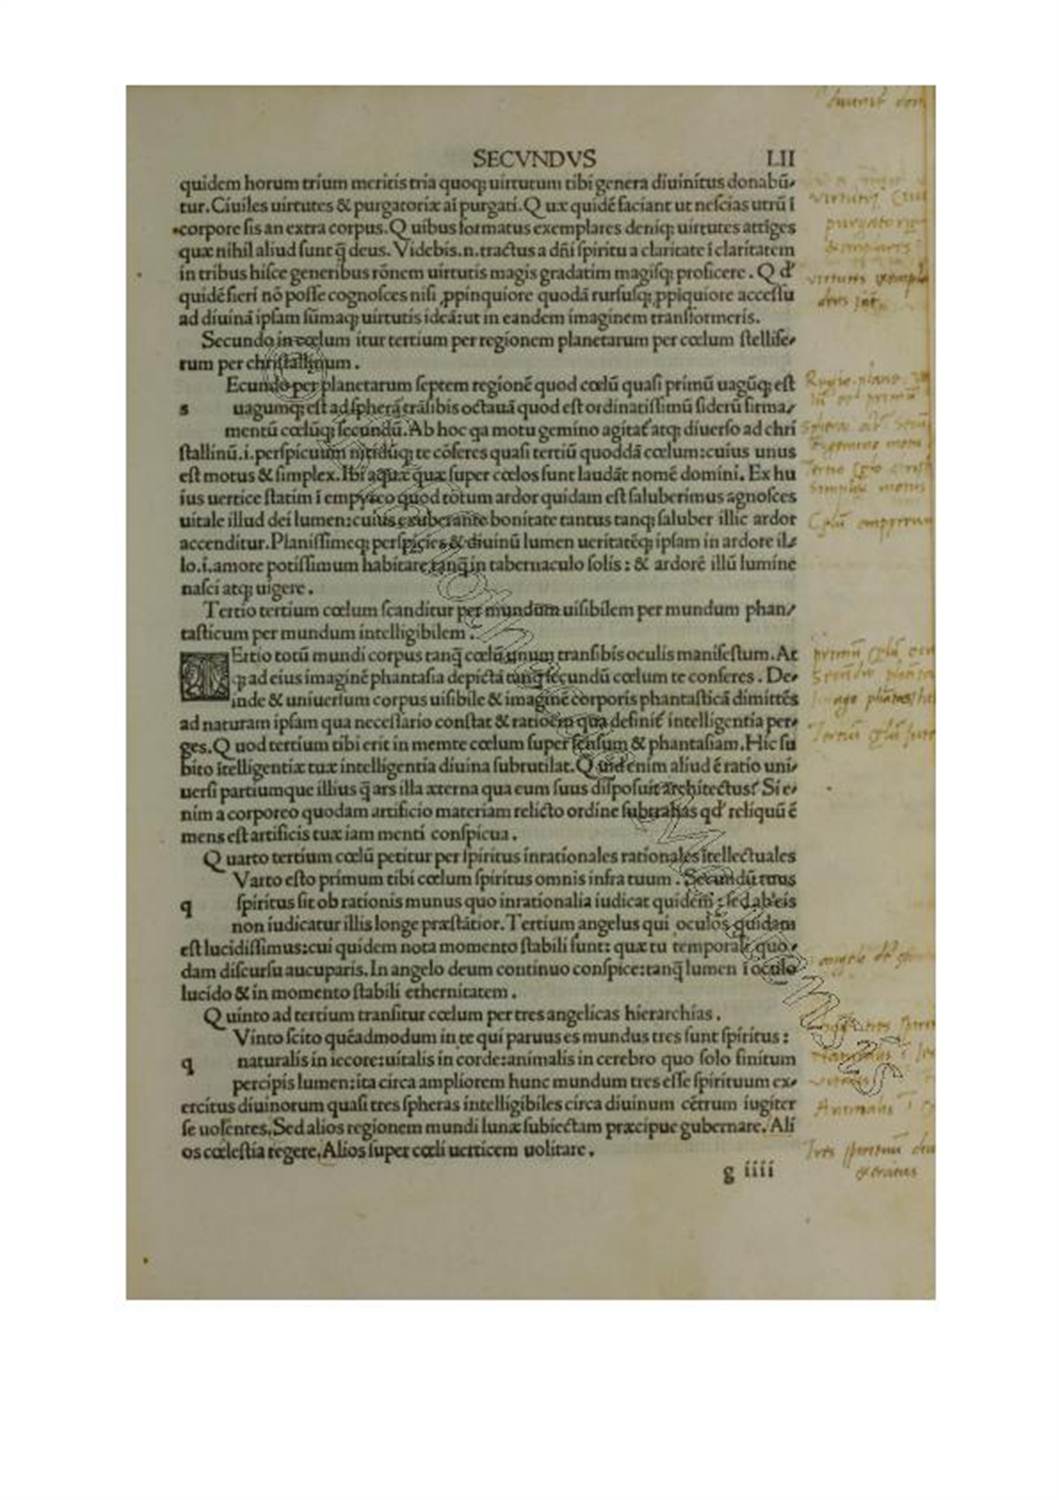 SECVNDVS LII
quidem horum trium meritis tria quoqꝫ uirtutum tibi genera diuinitus donabũ-
tur. Ciuiles uirtutes & purgatoriæ aĩ purgati. Quæ quidẽ faciant ut nescias utrũ ĩ
corpore sis an extra corpus. Quibus formatus exemplares deniqꝫ uirtutes attiges
quæ nihil aliud sunt q̃ deus. Videbis .n. tractus a dñi spiritu a claritate ĩ claritatem
in tribus hisce generibus rõnem uirtutis magis gradatim magisqꝫ proficere. Qd'
quidẽ fieri nõ posse cognosces nisi ꝓpinquiore quodã rursusqꝫ ꝓpiquiore accessu
ad diuinã ipsam sũmaqꝫ uirtutis ideã: ut in eandem imaginem transformeris.
Secundo in cœlum itur tertium per regionem planetarum per cœlum stellife-
rum per christallinum.
Ecundo per planetarum septem regionẽ quod cœlũ quasi primũ uagũqꝫ est
s uagumqꝫ est ad spherã trãsibis octauã quod est ordinatissimũ siderũ firma/
mentũ cœlũqꝫ secundũ. Ab hoc qa motu gemino agitat̃ atqꝫ diuerso ad chri
stallinũ .i. perspicuum nitidũqꝫ te cõferes quasi tertiũ quoddã cœlum: cuius unus
est motus & simplex. Ibi aquæ quæ super cœlos sunt laudãt nomẽ domini. Ex hu
ius uertice statim ĩ empyreo quod totum ardor quidam est saluberimus agnosces
uitale illud dei lumen: cuius exuberante bonitate tantus tanqꝫ saluber illic ardor
accenditur. Planissimeqꝫ perspicies & diuinũ lumen ueritatẽqꝫ ipsam in ardore il-
lo .i. amore potissimum habitare tanq̃ in tabernaculo solis: & ardorẽ illũ lumine
nasci atqꝫ uigere.
Tertio tertium cœlum scanditur per mundum uisibilem per mundum phan/
tasticum per mundum intelligibilem.
TErtio totũ mundi corpus tanq̃ cœlũ unum transibis oculis manifestum. At
qꝫ ad eius imaginẽ phantasia depictã tanq̃ secundũ cœlum te conferes. De-
inde & uniuersum corpus uisibile & imaginẽ corporis phantasticã dimittẽs
ad naturam ipsam qua necessario constat & rationem qua definit̃ intelligentia per-
ges. Quod tertium tibi erit in memte cœlum super sensum & phantasiam. Hic su
bito ĩtelligentiæ tuæ intelligentia diuina subrutilat. Quid enim aliud ẽ ratio uni-
uersi partiumque illius q̃ ars illa æterna qua eum suus disposuit architectus? Si e-
nim a corporeo quodam artificio materiam relicto ordine subtrahas qd' reliquũ ẽ
mens est artificis tuæ iam menti conspicua.
Quarto tertium cœlũ petitur per spiritus inrationales rationales ĩtellectuales
Varto esto primum tibi cœlum spiritus omnis infra tuum. Secundũ tuus
q spiritus sit ob rationis munus quo inrationalia iudicat quidem: sed ab eis
non iudicatur illis longe præstãtior. Tertium angelus qui oculos quidam
est lucidissimus: cui quidem nota momento stabili sunt: quæ tu temporali quo-
dam discursu aucuparis. In angelo deum continuo conspice: tanq̃ lumen ĩ oculo
lucido & in momento stabili ethernitatem.
Quinto ad tertium transitur cœlum per tres angelicas hierarchias.
Vinto scito quẽadmodum in te qui paruus es mundus tres sunt spiritus:
q naturalis in iecore: uitalis in corde: animalis in cerebro quo solo finitum
percipis lumen: ita circa ampliorem hunc mundum tres esse spirituum ex-
ercitus diuinorum quasi tres spheras intelligibiles circa diuinum cẽtrum iugiter
se uosentes. Sed alios regionem mundi lunæ subiectam præcipue gubernare. Ali
os cœlestia regere. Alios super cœli uerticem uolitare.
g iiii